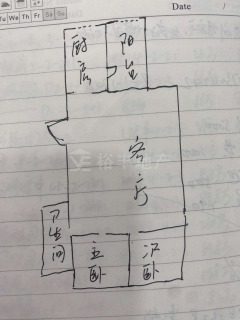 Date /
We Th Fr Sa Su
厨房
阳台
客厅
卫生间
主卧
次卧